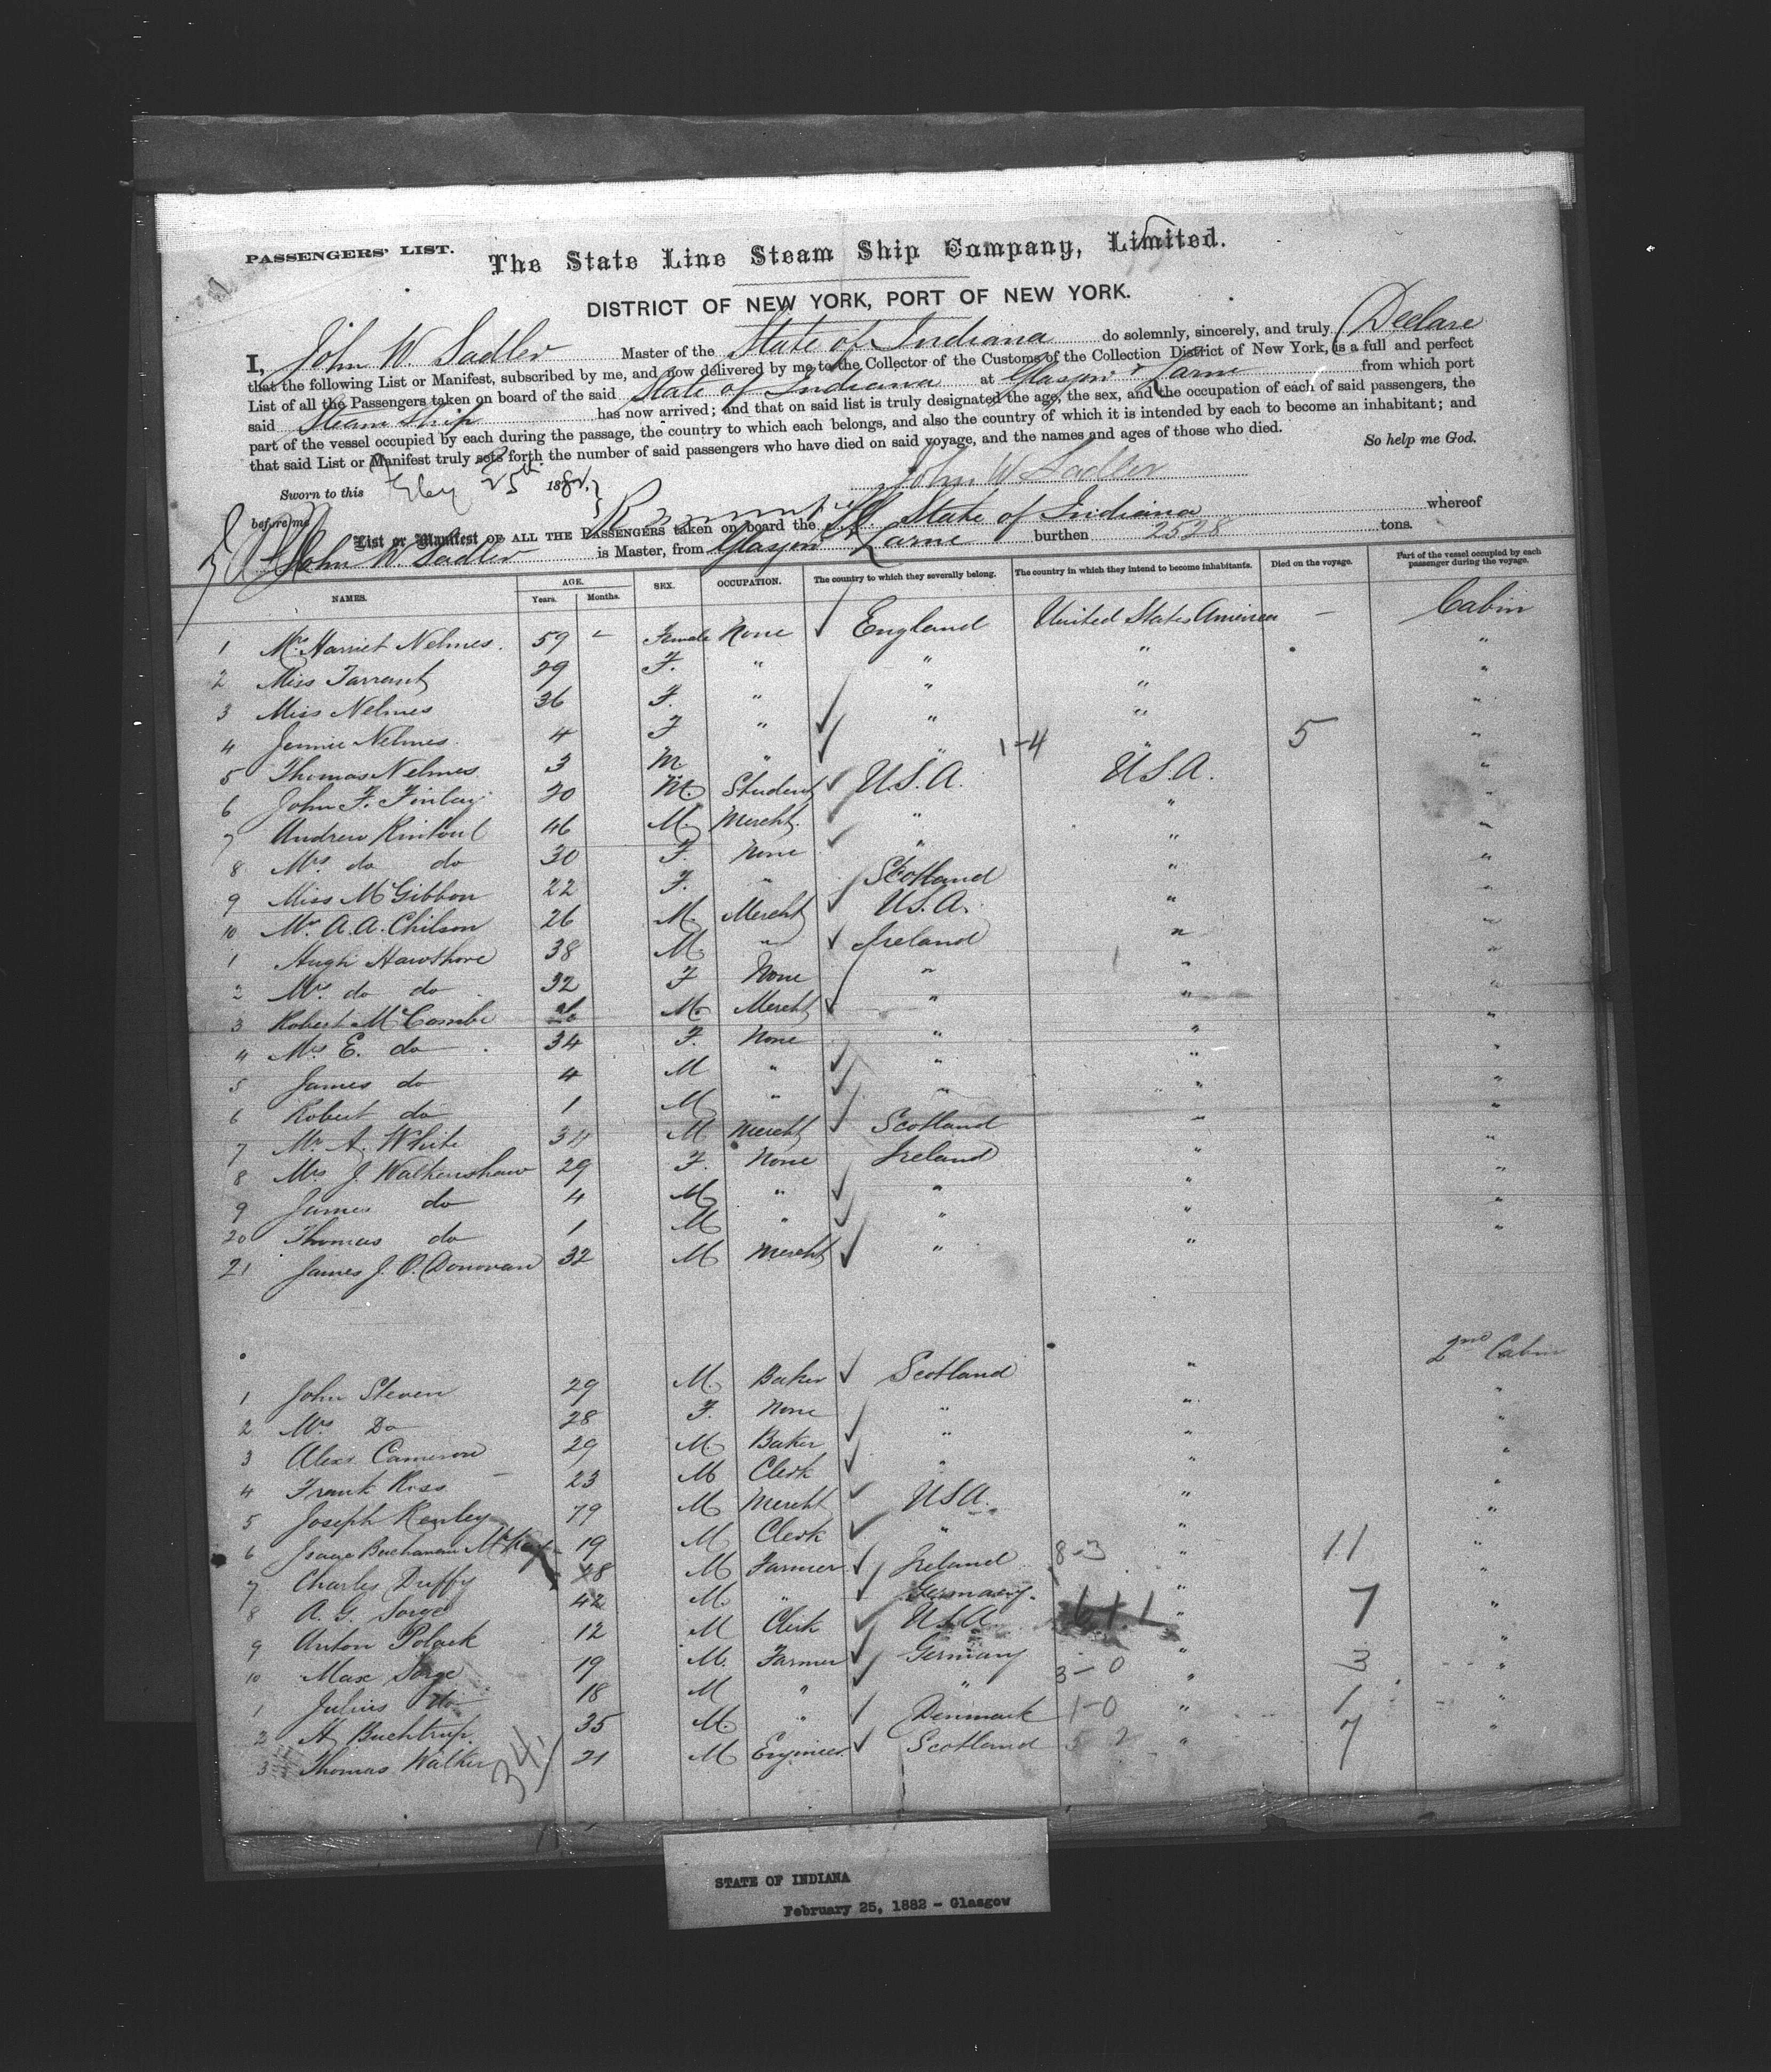 PASSENGERS' LIST.
The State Line Steam Ship Company, Limited.
DISTRICT OF NEW YORK, PORT OF NEW YORK.
I, John W. Sadler Master of the State of Indiana do solemnly, sincerely, and truly Declare
that the following List or Manifest, subscribed by me, and now delivered by me to the Collector of the Customs of the Collection District of New York, is a full and perfect
List of all the Passengers taken on board of the said State of Indiana at Glasgow & Larne from which port
said Steam Ship has now arrived; and that on said list is truly designated the age, the sex, and the occupation of each of said passengers, the
part of the vessel occupied by each during the passage, the country to which each belongs, and also the country of which it is intended by each to become an inhabitant; and
that said List or Manifest truly sets forth the number of said passengers who have died on said voyage, and the names and ages of those who died.
So help me God.
Sworn to this Feby 25th 1882,
John W Sadler
before me
List or Manifest OF ALL THE PASSENGERS taken on board the S.S. State of Indiana whereof
John W. Sadler is Master, from Glasgow & Larne burthen 2528 tons.
NAMES. AGE. Years. Months. SEX. OCCUPATION. The country to which they severally belong. The country in which they intend to become inhabitants. Died on the voyage. Part of the vessel occupied by each passenger during the voyage.
1 Mrs Harriet Nelmes. 59 - Female None England United States America - Cabin
2 Miss Tarrant 29 F. " " " "
3 Miss Nelmes 36 F. " " " "
4 Jennie Nelmes. 4 F " " " "
5 Thomas Nelmes 3 M " " 1-4 " 5 "
6 John F. Finlay 20 M. Student U.S.A. U.S.A. "
7 Andrew Rintoul 46 M. Mercht. " " "
8 Mrs. do do 30 F. None " " "
9 Miss McGibbon 22 F. " Scotland " "
10 Mr. A. A. Chilson 26 M. Mercht U.S.A. " "
1 Hugh Hawthorne 38 M. " Ireland " "
2 Mrs. do do 32 F None " " "
3 Robert McCombe M. Mercht " " "
4 Mrs E. do 34 F. None " " "
5 James do 4 M " " " "
6 Robert do 1 M " " " "
7 Mr. A. White 34 M Mercht Scotland " "
8 Mrs J. Walkenshaw 29 F. None Ireland " "
9 James do 4 M " " " "
20 Thomas do 1 M " " " "
21 James J. O. Donovan 32 M Mercht " " "
2nd Cabin
1 John Steven 29 M. Baker Scotland " "
2 Mrs Do 28 F. None " " "
3 Alexr Cameron 29 M. Baker " " "
4 Frank Ross 23 M Clerk " " "
5 Joseph Renley 79 M Mercht USA. " "
6 Isaac Buchanan McKay 19 M Clerk " " "
7 Charles Duffy 48 M Farmer Ireland 8-3 " 11 "
8 A. G. Sorge 42 M. " Germany. " "
9 Anton Polack 12 M Clerk U.S.A. " 7 "
10 Max Sorge 19 M. Farmer Germany " "
1 Julius do 18 M " " 3-0 " 3 "
2 H Buchtrup. 35 M. " Denmark 1-0 " 1 "
3 Thomas Walker 21 M Engineer Scotland 5 2 " 7 "
34
STATE OF INDIANA
February 25, 1882 - Glasgow